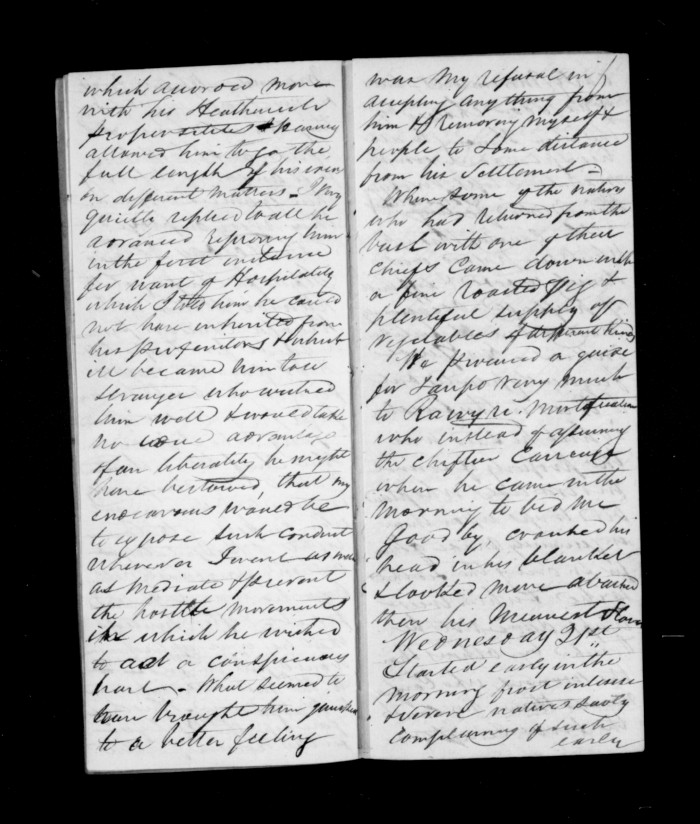 which accorded more
with his Heathenish
propensities & having
allowed him to go the
full length of his
on different matters - I very
quietly replied to all he
advanced reproving him
in the first instance
for want of Hospitality
which I told him he could
not have inherited from
his progenitors & which
ill became him to a
stranger who wished
him well & would take
no advantage
of any liberality he might
have bestowed, that my
endeavours would be
to expose such conduct
wherever I went as well
as mediate & prevent
the hostile movements
in which he wished
to act a conspicuous
part - What seemed to
have brought him
to a better feeling
was my refusal in
accepting anything from
him & removing myself &
people to some distance
from his Settlement -
Where some of the natives
who had returned from the
bush with one of their
chiefs came down with
a fine roasted pig &
plentiful supply of
vegetables of different kinds
We procured a guide
for Taupo very much
to Rawyri mortification
who instead of assuming
the chieftain
when he came in the
morning to bid me
Good by, crouched his
head in his blanket
& looked more abashed
than his meanest slave
Wednesday 21st
Started early in the
morning frost intense
& severe natives sadly
complaining of such
early